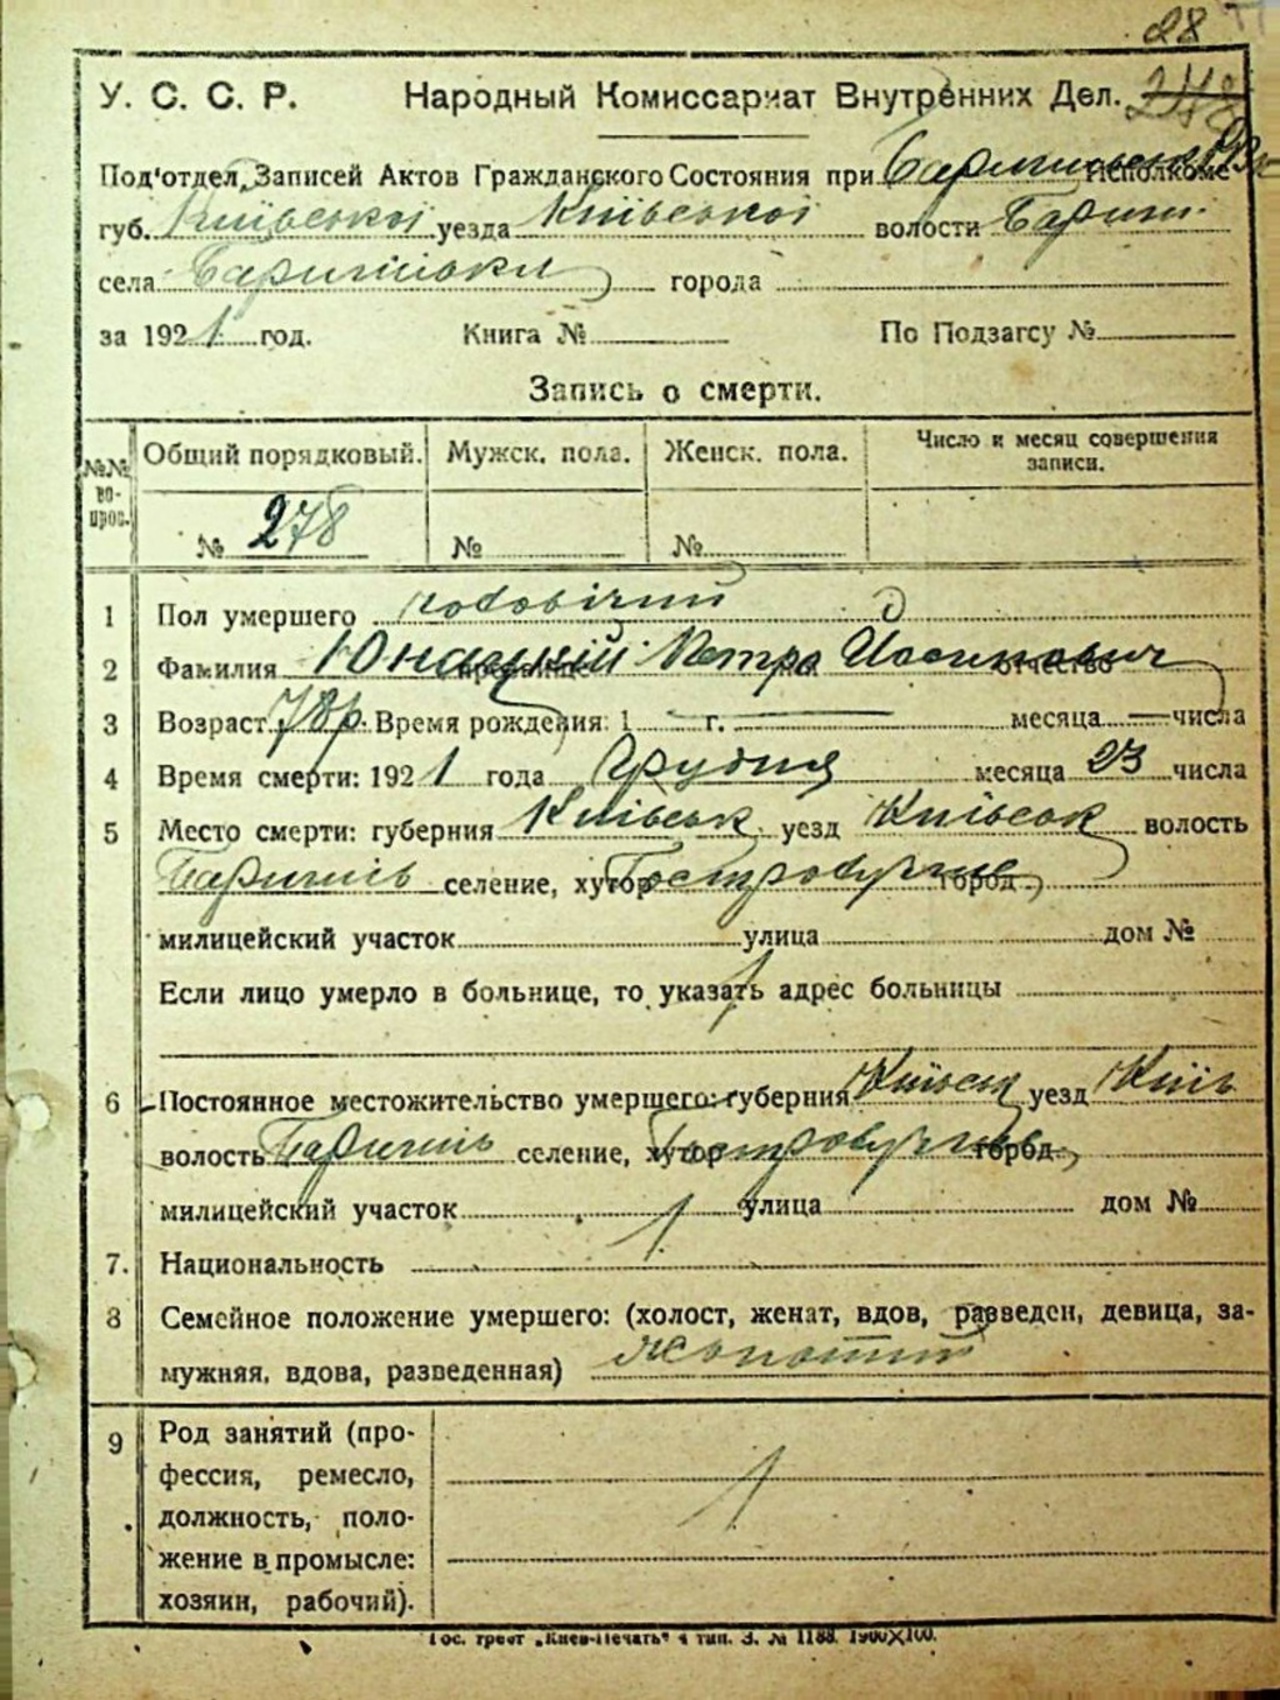 28
У. С. С. Р. Народный Комиссариат Внутренних Дел. 248
Под'отдел Записей Актов Гражданского Состояния при Исполкоме
губ. Київської уезда Київської волости Бариш.
села Баришівки города
за 1921 год. Книга № По Подзагсу №
Запись о смерти.
№№ вопрос. Общий порядковый. Мужск. пола. Женск. пола. Число и месяц совершения записи.
№ 278 № №
1 Пол умершего чоловічий
2 Фамилия Юнацкій Петро Йосипович отчество
3 Возраст 78 р. Время рождения: 1 — г. — месяца — числа
4 Время смерти: 1921 года Грудня месяца 23 числа
5 Место смерти: губерния Київськ. уезд Київськ волость
Баришів селение, хутор город
милицейский участок улица дом №
Если лицо умерло в больнице, то указать адрес больницы
6 Постоянное местожительство умершего: губерния Київськ уезд Київ
волость Баришів селение, хутор город
милицейский участок улица дом №
7. Национальность
8 Семейное положение умершего: (холост, женат, вдов, разведен, девица, за-
мужняя, вдова, разведенная) жонатий
9 Род занятий (про-
фессия, ремесло,
должность, поло-
жение в промысле:
хозяин, рабочий).
Гос. трест „Киев-Печать“ 4 тип. З. № 1188. 1900×100.